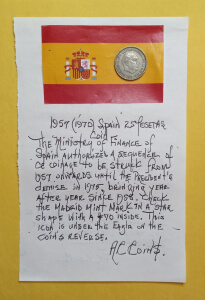 1957 (1970) Spain 25 Pesetas
Coin
The Ministry of Finance of
Spain authorized a sequence of
coinage to be struck from
1957 onwards until the President's
demise in 1975, bringing year
after year since 1958. Check
the Madrid Mint Mark in a star
shape with a 70 inside. This
icon is under the Eagle on the
coin's reverse.
AC Coin$